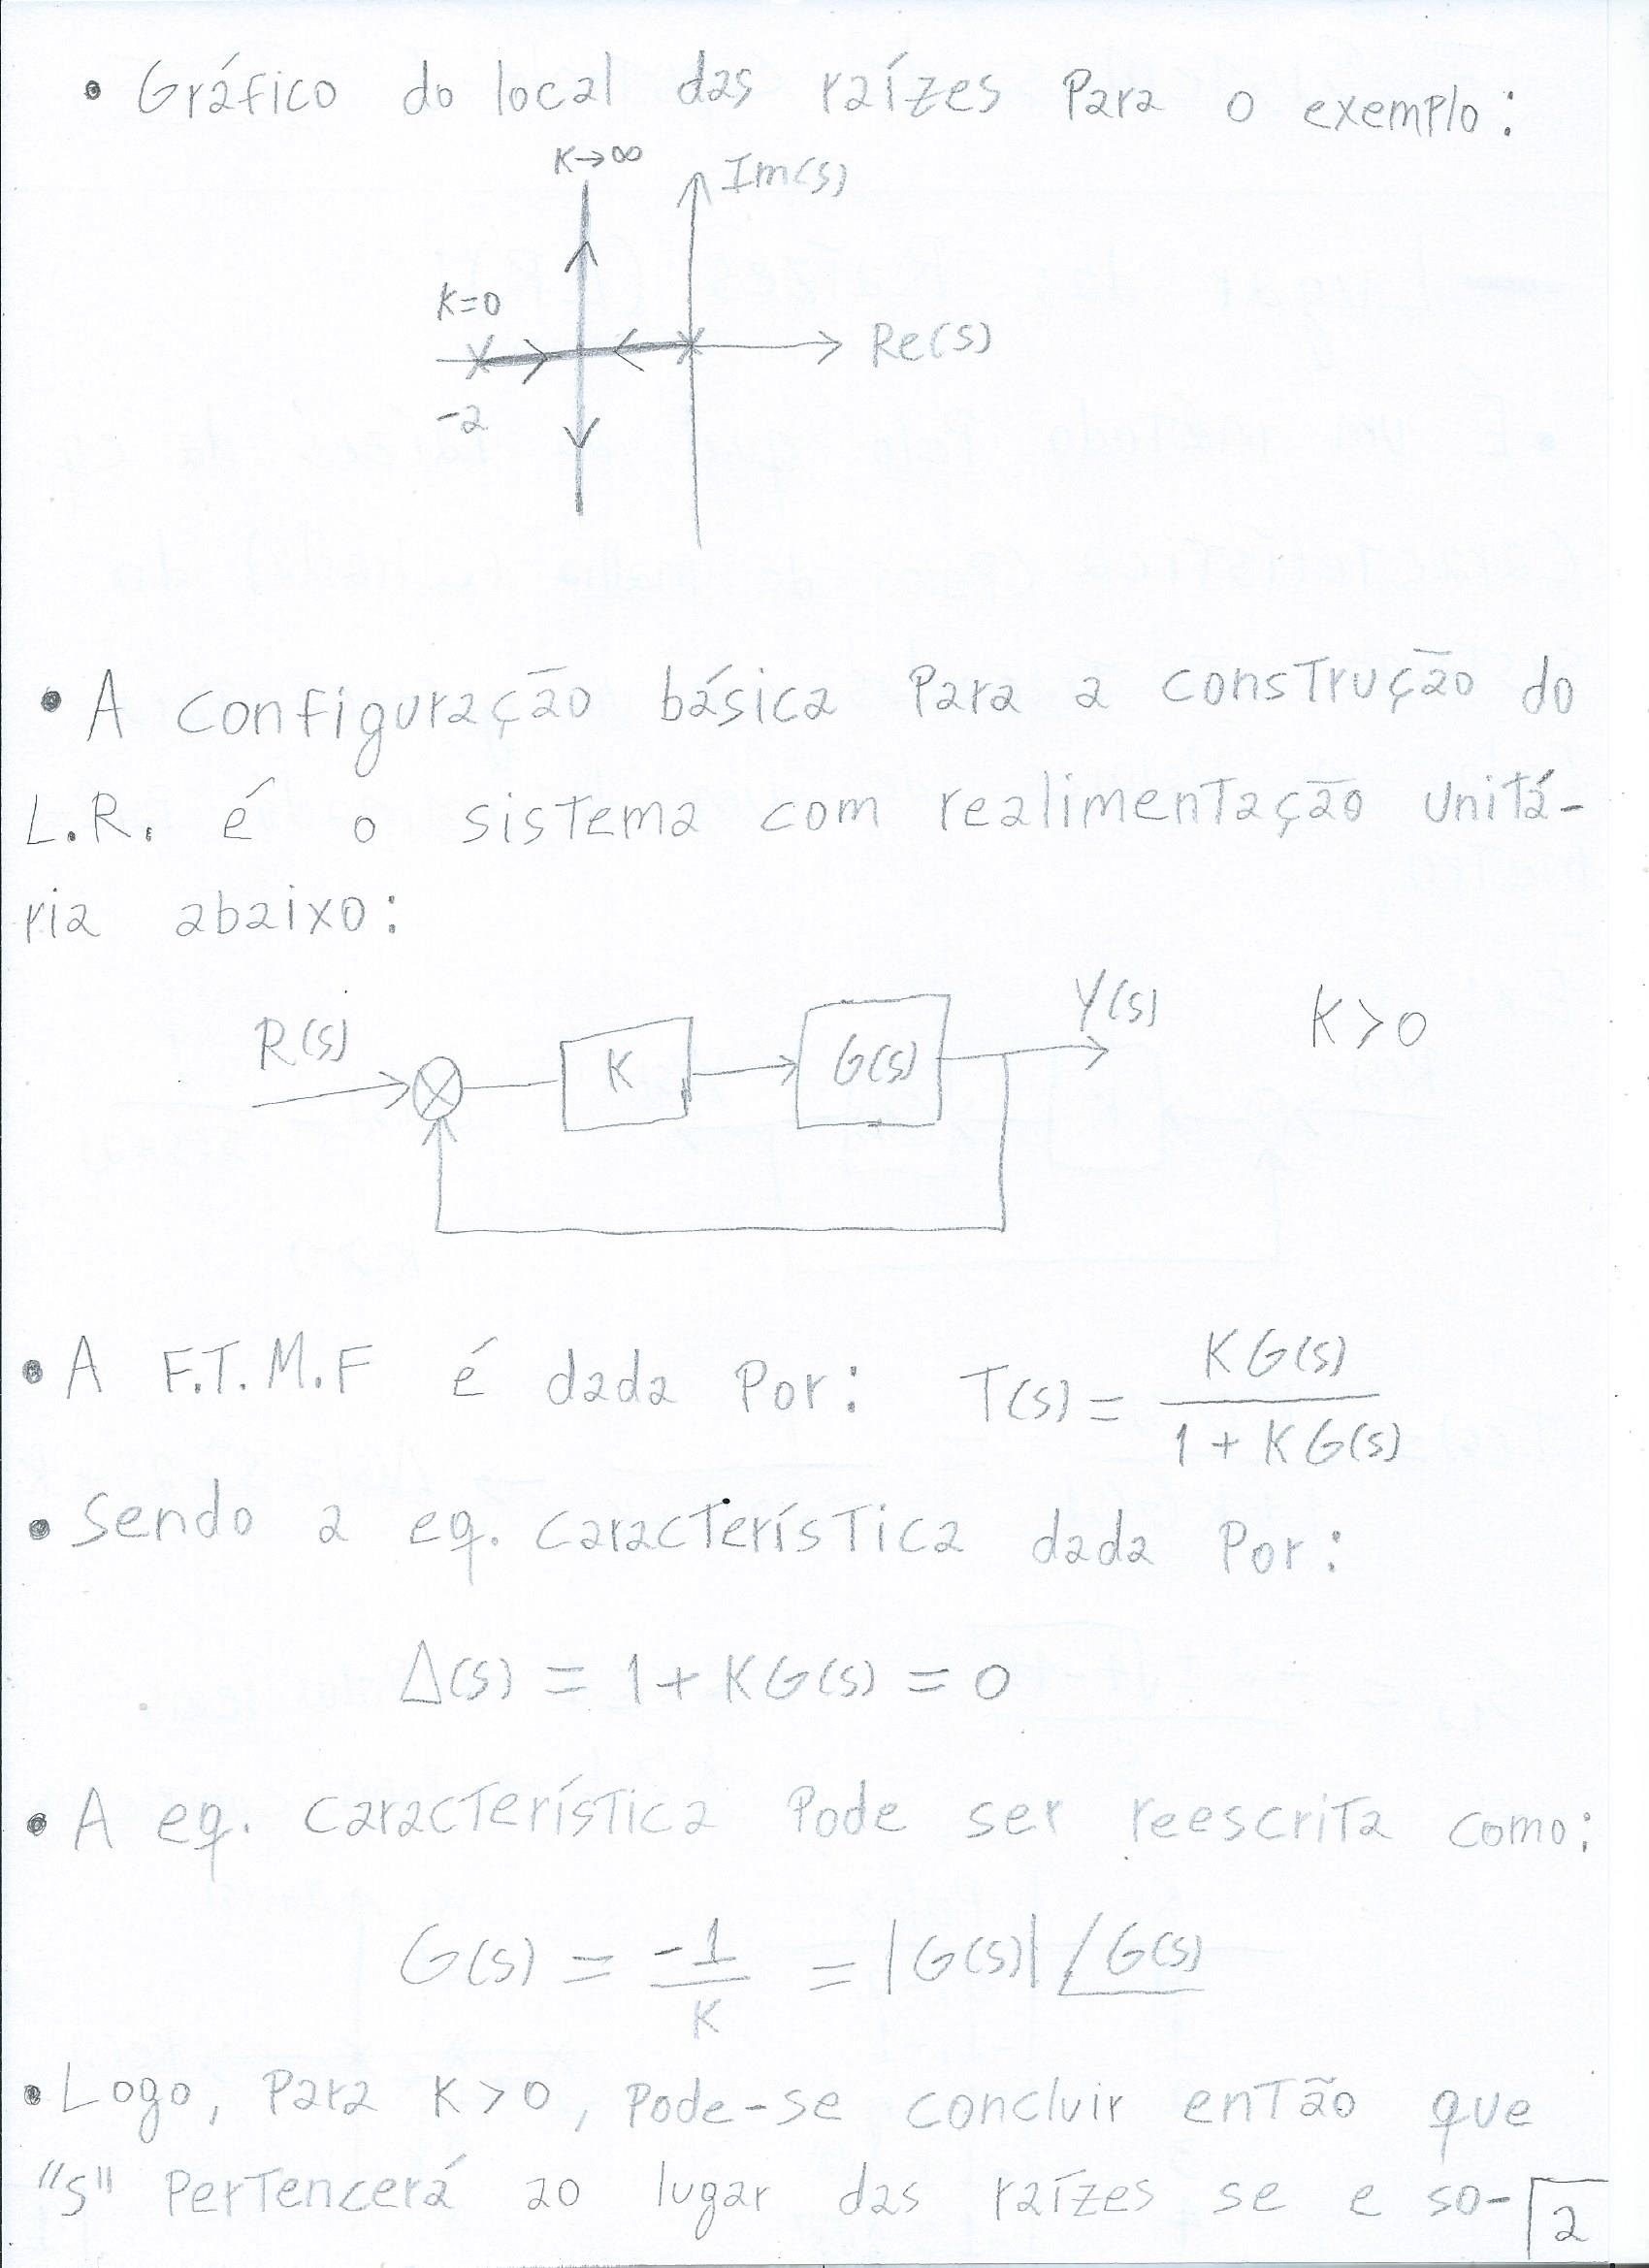 • Gráfico do local das raízes Para o exemplo:
K→∞
Im(s)
K=0
Re(s)
-2
• A configuração básica Para a construção do
L.R. é o sistema com realimentação unitá-
ria abaixo:
R(s) K G(s) Y(s) K>0
• A F.T.M.F é dada Por: T(s) = KG(s) / 1 + KG(s)
• Sendo a eq. característica dada Por:
Δ(s) = 1 + KG(s) = 0
• A eq. característica Pode ser reescrita como:
G(s) = -1/K = |G(s)| /G(s)
• Logo, Para K>0, Pode-se concluir então que
"s" Pertencerá ao lugar das raízes se e so-
2